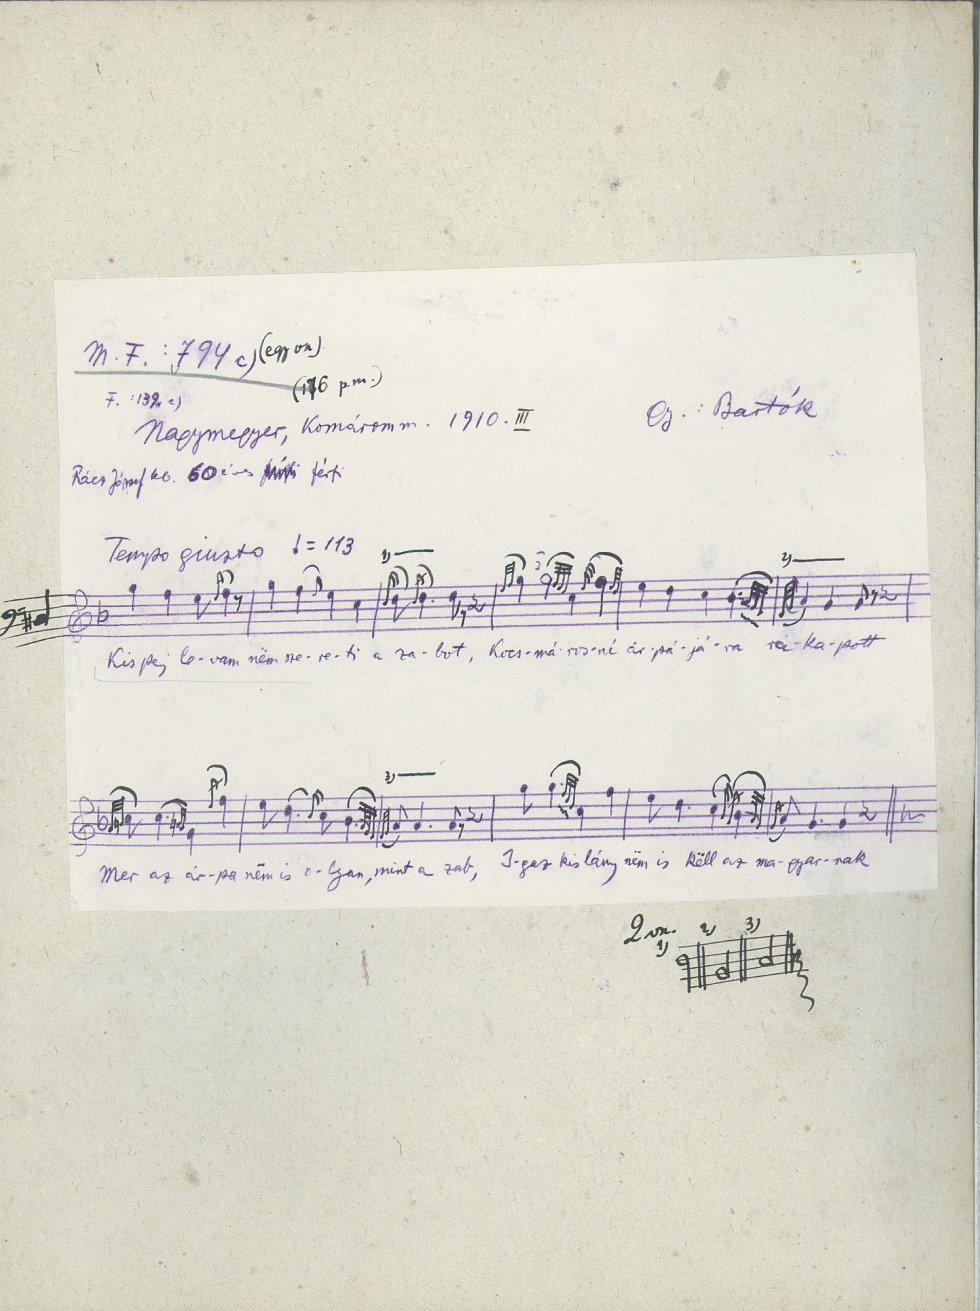 M. F. : 794 c) (egy vx.)
(176 p.m.)
F. : 139 c)
Nagymegyer, Komárom m. 1910. III
Gy. : Bartók
Rácz József kb. 60 éves férfi
Tempo giusto ♩= 113
1) 2)
Kis pej lo-vam nëm sze-re-ti a za-bot, Kocs-má-ros-né ár-pá-já-ra rá-ka-pott
3)
Mer az ár-pa nëm is o-lyan, mint a zab, I-gaz kis lány nëm is këll az ma-gyar-nak
2 vx. 1) 2) 3)